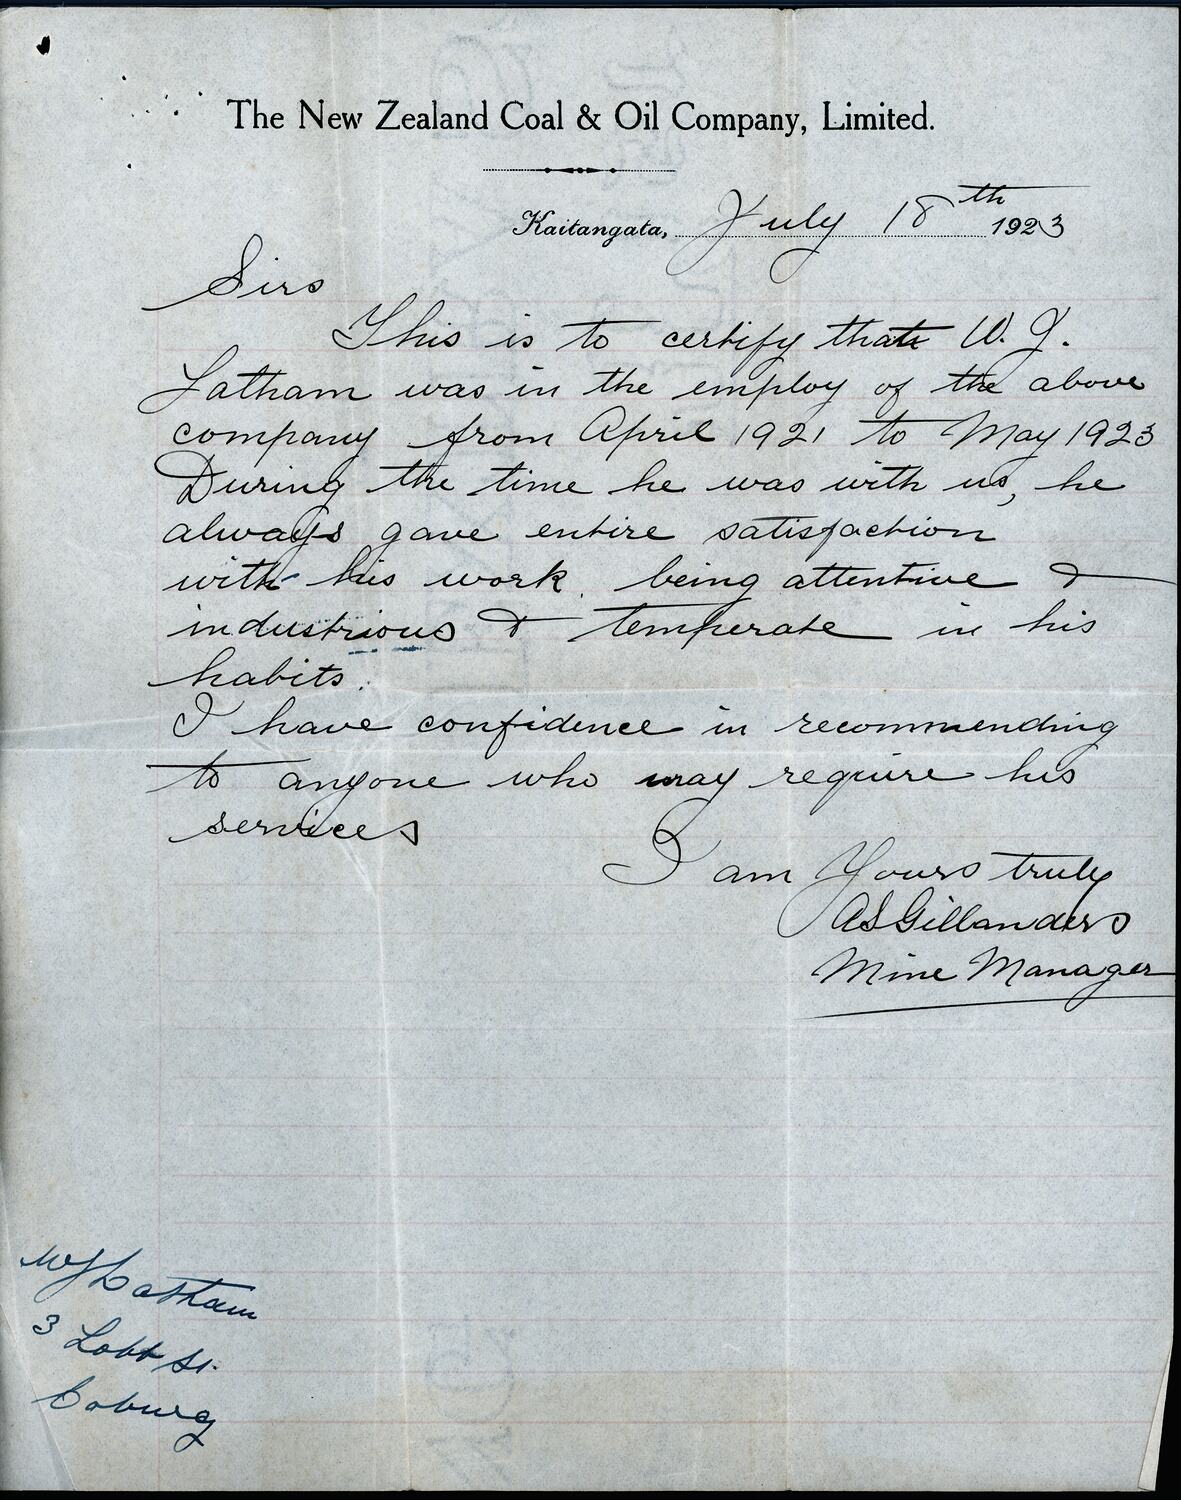 The New Zealand Coal & Oil Company, Limited.
Kaitangata, July 18th 1923
Sirs
This is to certify that W. J.
Latham was in the employ of the above
company from April 1921 to May 1923
During the time he was with us, he
always gave entire satisfaction
with his work. being attentive &
industrious & temperate in his
habits.
I have confidence in recommending
to anyone who may require his
services
I am Yours truly
AS Gillanders
Mine Manager
WJ Latham
3 Lobb St.
Coburg